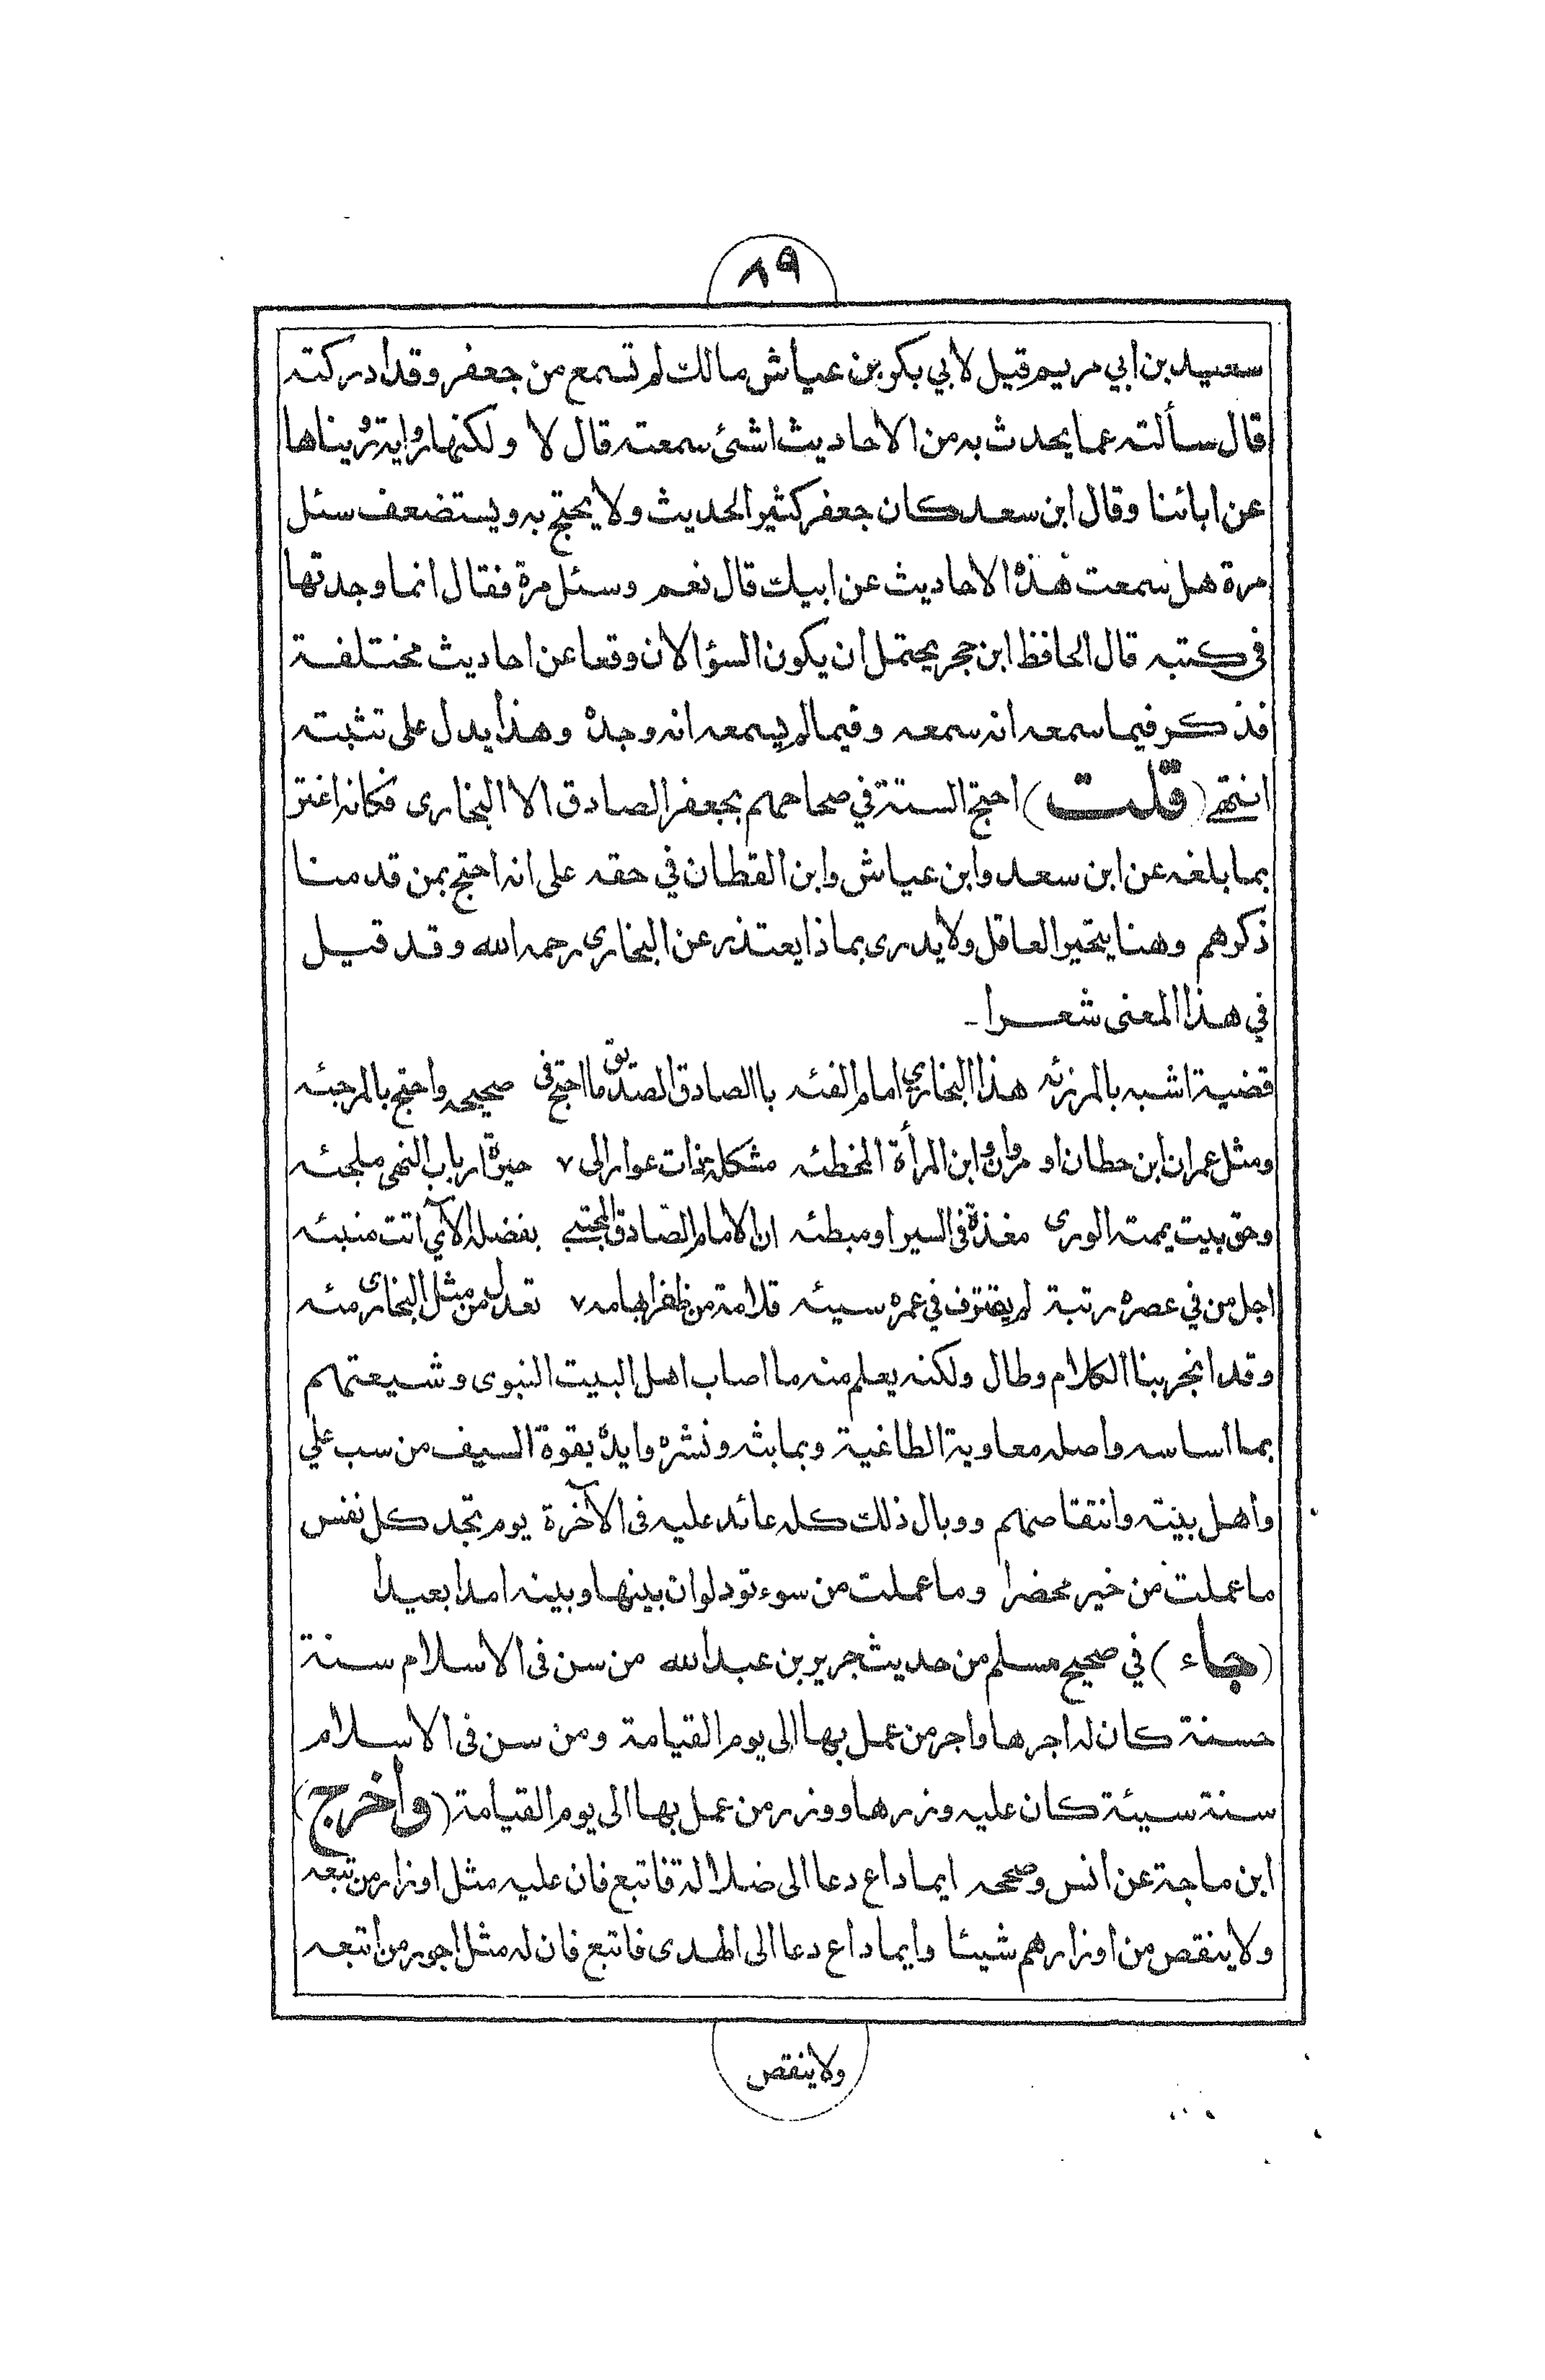 ٨٩
سعيد بن أبي مريم قيل لأبي بكر بن عياش مالك لم تسمع من جعفر وقد أدركته
قال سألته عما يحدث به من الاحاديث اشئ سمعته قال لا ولكنها رواية رويناها
عن ابائنا وقال ابن سعد كان جعفر كثير الحديث ولا يحتج به ويستضعف سئل
مرة هل سمعت هذه الاحاديث عن ابيك قال نعم وسئل مرة فقال انما وجدتها
في كتبه قال الحافظ ابن حجر يحتمل ان يكون السؤالان وقعا عن احاديث مختلفة
فذكر فيما سمعه انه سمعه وفيما لم يسمعه انه وجده وهذا يدل على تثبته
انتهى (قلت) احتج الستة في صحاحهم بجعفر الصادق الا البخاري فكانه اغتر
بما بلغه عن ابن سعد وابن عياش وابن القطان في حقه على انه احتج بمن قدمنا
ذكرهم وهنا يتحير العاقل ولا يدرى بماذا يعتذر عن البخاري رحمه الله وقد قيل
في هذا المعنى شعرا -
قضية اشبه بالمرزئه هذا البخاري امام الفئه باالصادق الصديق ما احتج في صحيحه واحتج بالمرجئه
ومثل عمران ابن حطان او مروان وابن المرأة المخطئه مشكلة ذات عوار الى ٧ حيرة ارباب النهى ملجئه
وحق بيت يممته الورى مغذة في السير او مبطئه ان الامام الصادق المجتبى بفضله الآي اتت منبئه
اجل من في عصره رتبة لم يقترف في عمره سيئه قلامة من ظفر ابهامه ٧ تعدل من مثل البخاري مئه
وقد انجر بنا الكلام وطال ولكنه يعلم منه ما اصاب اهل البيت النبوى وشيعتهم
بما اساسه واصله معاوية الطاغية وبما بثه ونشره وايده بقوة السيف من سب علي
وأهل بيته وانتقاصهم ووبال ذلك كله عائد عليه في الآخرة يوم تجد كل نفس
ما عملت من خير محضرا وما عملت من سوء تود لو ان بينها وبينه امدا بعيدا
(جاء) في صحيح مسلم من حديث جرير بن عبد الله من سن في الاسلام سنة
حسنة كان له اجرها واجر من عمل بها الى يوم القيامة ومن سن في الاسلام
سنة سيئة كان عليه وزرها ووزر من عمل بها الى يوم القيامة (وأخرج)
ابن ماجة عن أنس وصححه ايما داع دعا الى ضلالة فاتبع فان عليه مثل اوزار من تبعه
ولا ينقص من اوزارهم شيئا وايما داع دعا الى الهدى فاتبع فان له مثل اجور من اتبعه
ولا ينقص